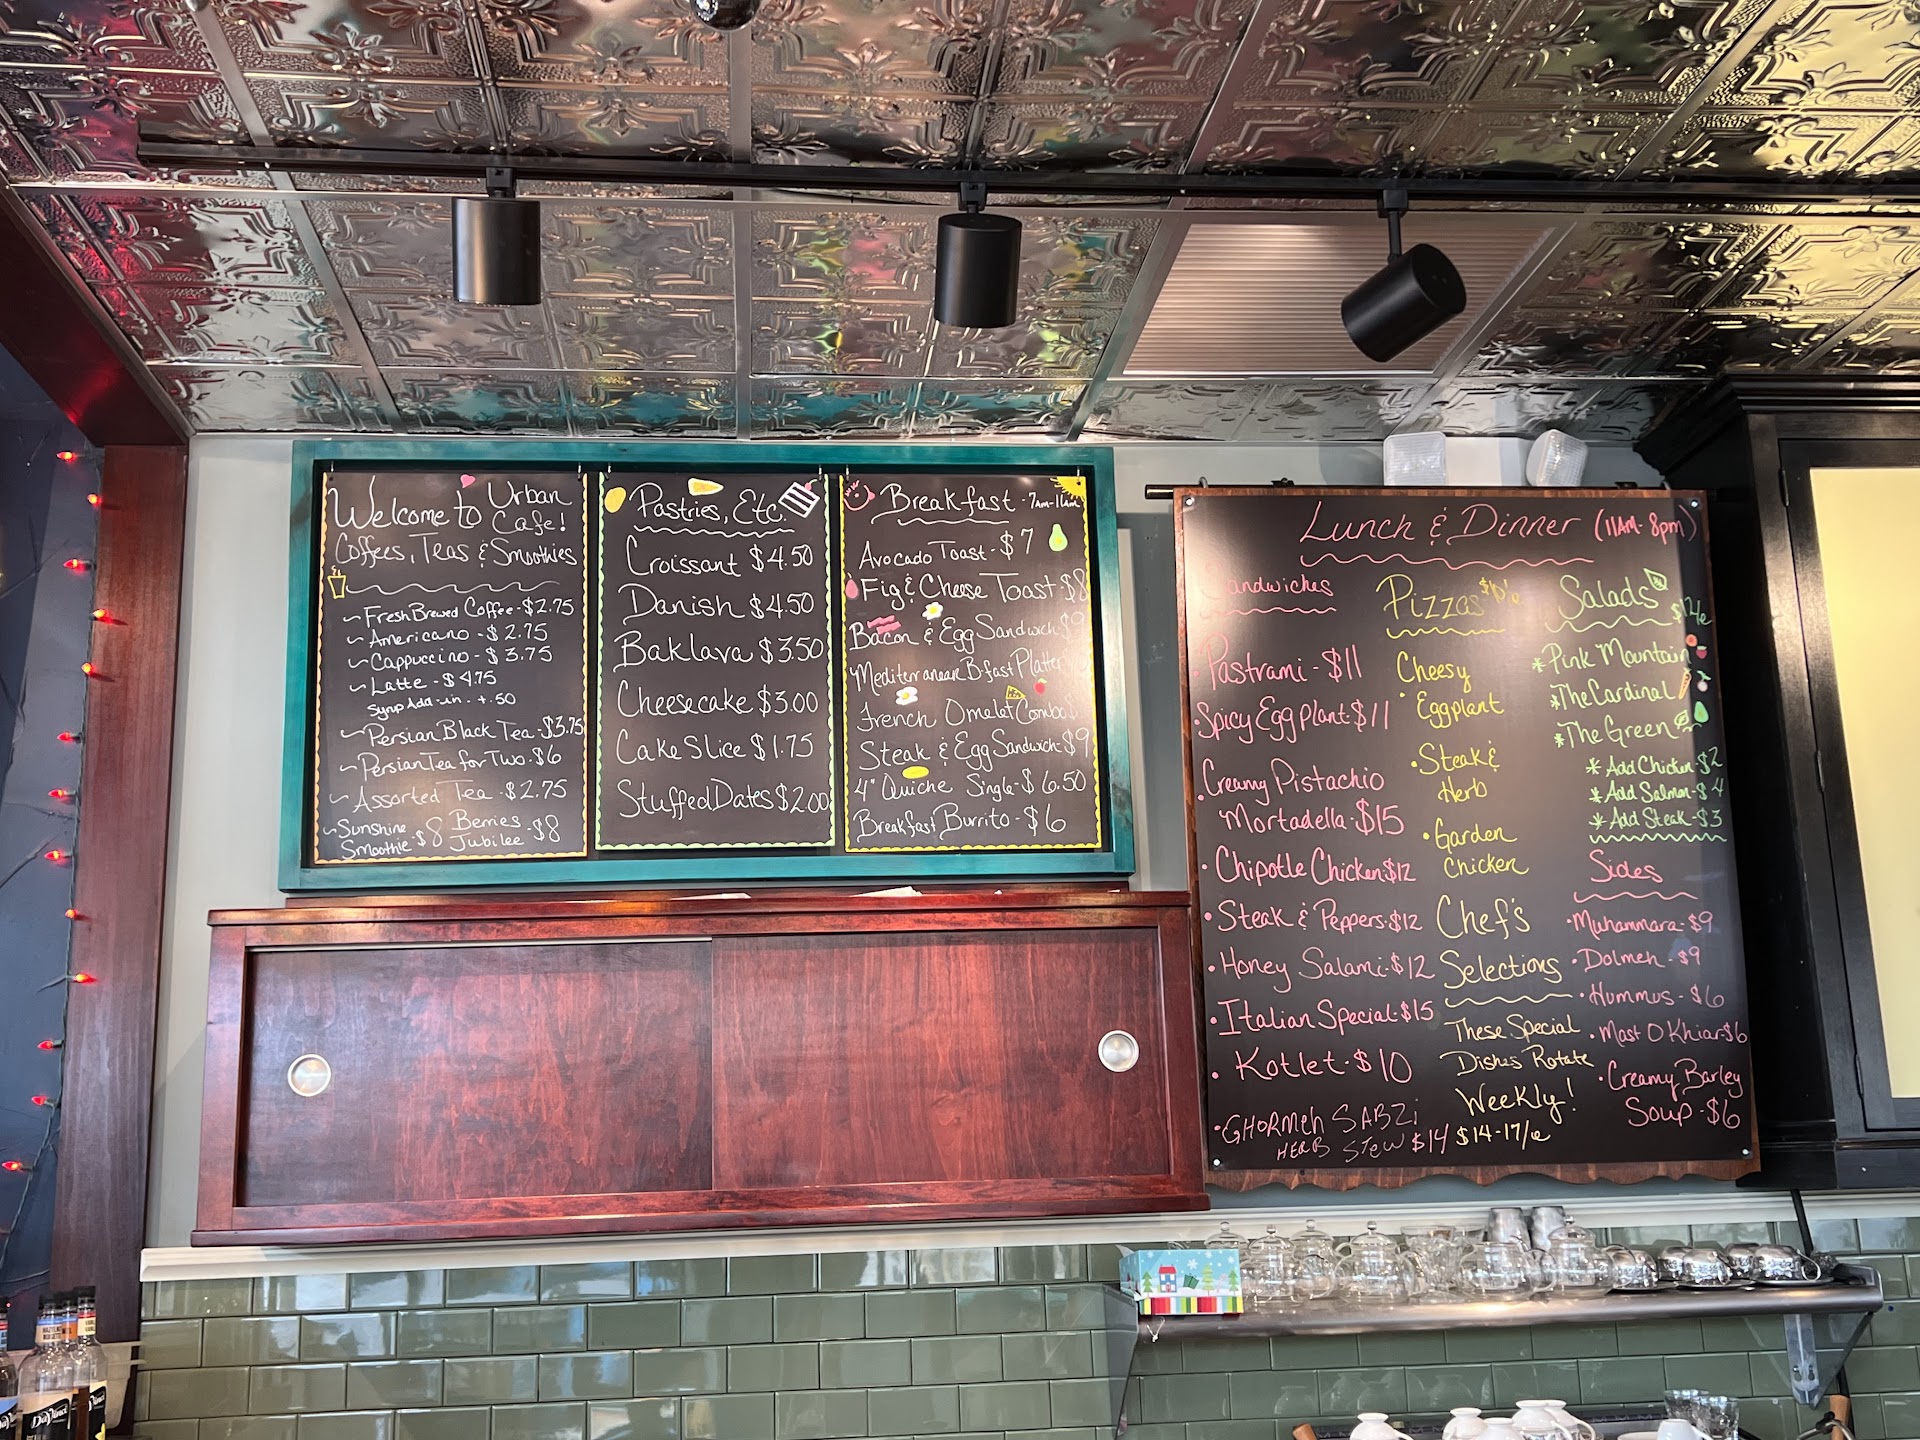 Welcome to Urban
Cafe!
Coffees, Teas & Smoothies
~ Fresh Brewed Coffee - $2.75
~ Americano - $2.75
~ Cappuccino - $3.75
~ Latte - $4.75
Syrup Add-in. +.50
~ Persian Black Tea - $3.75
~ Persian Tea for Two - $6
~ Assorted Tea - $2.75
~ Sunshine Smoothie $8 Berries Jubilee - $8
Pastries, Etc.
Croissant $4.50
Danish $4.50
Baklava $3.50
Cheesecake $3.00
Cake Slice $1.75
Stuffed Dates $2.00
Breakfast - 7am-11am
Avocado Toast - $7
Fig & Cheese Toast - $8
Bacon & Egg Sandwich $9
Mediterranean B'fast Platter
French Omelet Combo
Steak & Egg Sandwich - $9
4" Quiche Single - $6.50
Breakfast Burrito - $6
Lunch & Dinner (11AM - 8pm)
Sandwiches
• Pastrami - $11
• Spicy Eggplant $11
• Creamy Pistachio
Mortadella - $15
• Chipotle Chicken $12
• Steak & Peppers $12
• Honey Salami $12
• Italian Special $15
• Kotlet - $10
• GHORMEH SABZI
HERB STEW $14
Pizzas
Cheesy
• Eggplant
• Steak &
Herb
• Garden
Chicken
Chef's
Selections
These Special
Dishes Rotate
Weekly!
$14-17/e
Salads
* Pink Mountain
* The Cardinal
* The Green
* Add Chicken $2
* Add Salmon - $4
* Add Steak - $3
Sides
• Muhammara - $9
• Dolmeh - $9
• Hummus - $6
• Mast O Khiar $6
• Creamy Barley
Soup - $6
DaVinci